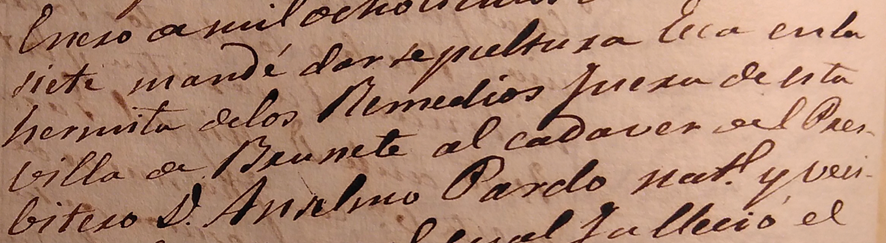 Enero de mil ochocientos
siete mandé dar sepultura Ecca en la
hermita de los Remedios fuera de esta
Villa de Brunete al cadaver del Pres-
bitero D. Anselmo Pardo natl. y veci-
qual falleció el